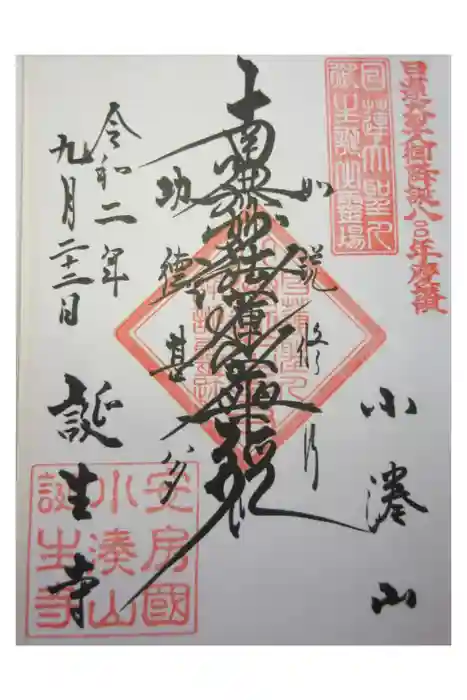 日蓮大聖人御降誕八〇〇年慶讃
日蓮大聖人
御生誕之霊場
小湊山
如説修行
南無妙法蓮華経
功徳甚多
令和二年
九月二十二日
誕生寺
安房國
小湊山
誕生寺